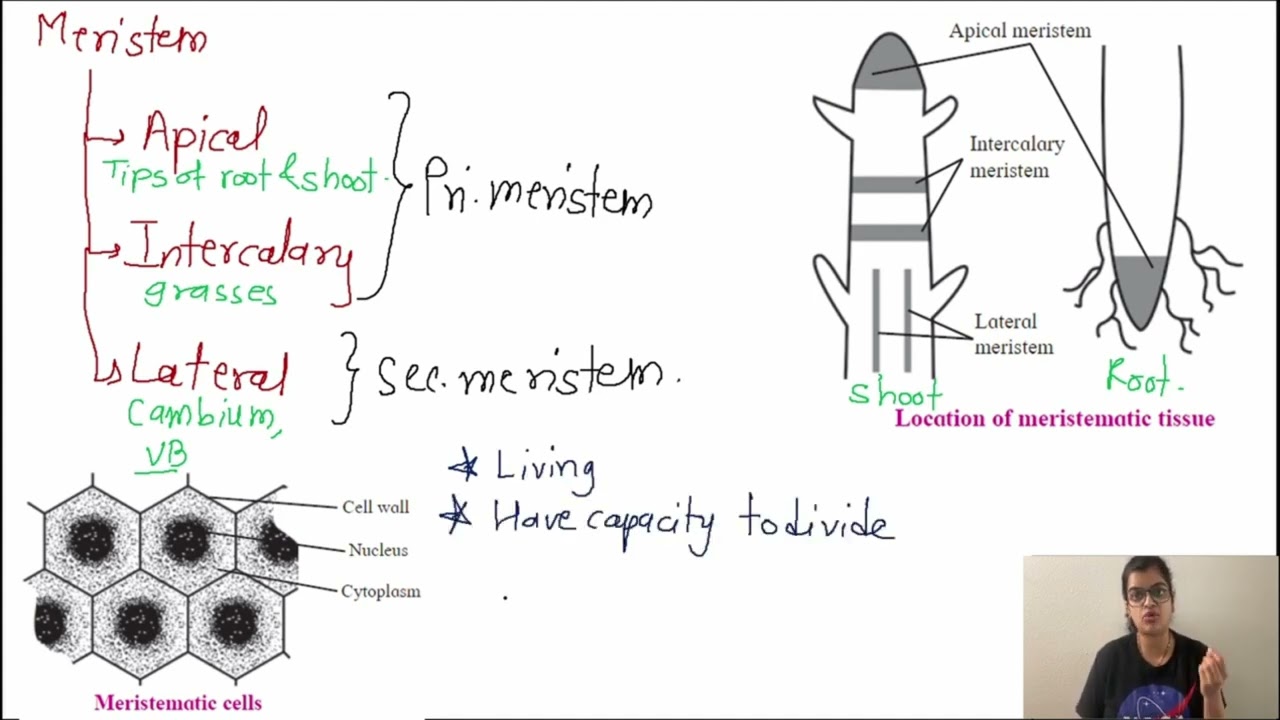 Meristem
Apical
Tips of root & shoot.
Intercalary
grasses
Pri. meristem
Lateral
Cambium,
VB
Sec. meristem.
Apical meristem
Intercalary
meristem
Lateral
meristem
Shoot
Root.
Location of meristematic tissue
* Living
* Have capacity to divide
Cell wall
Nucleus
Cytoplasm
Meristematic cells